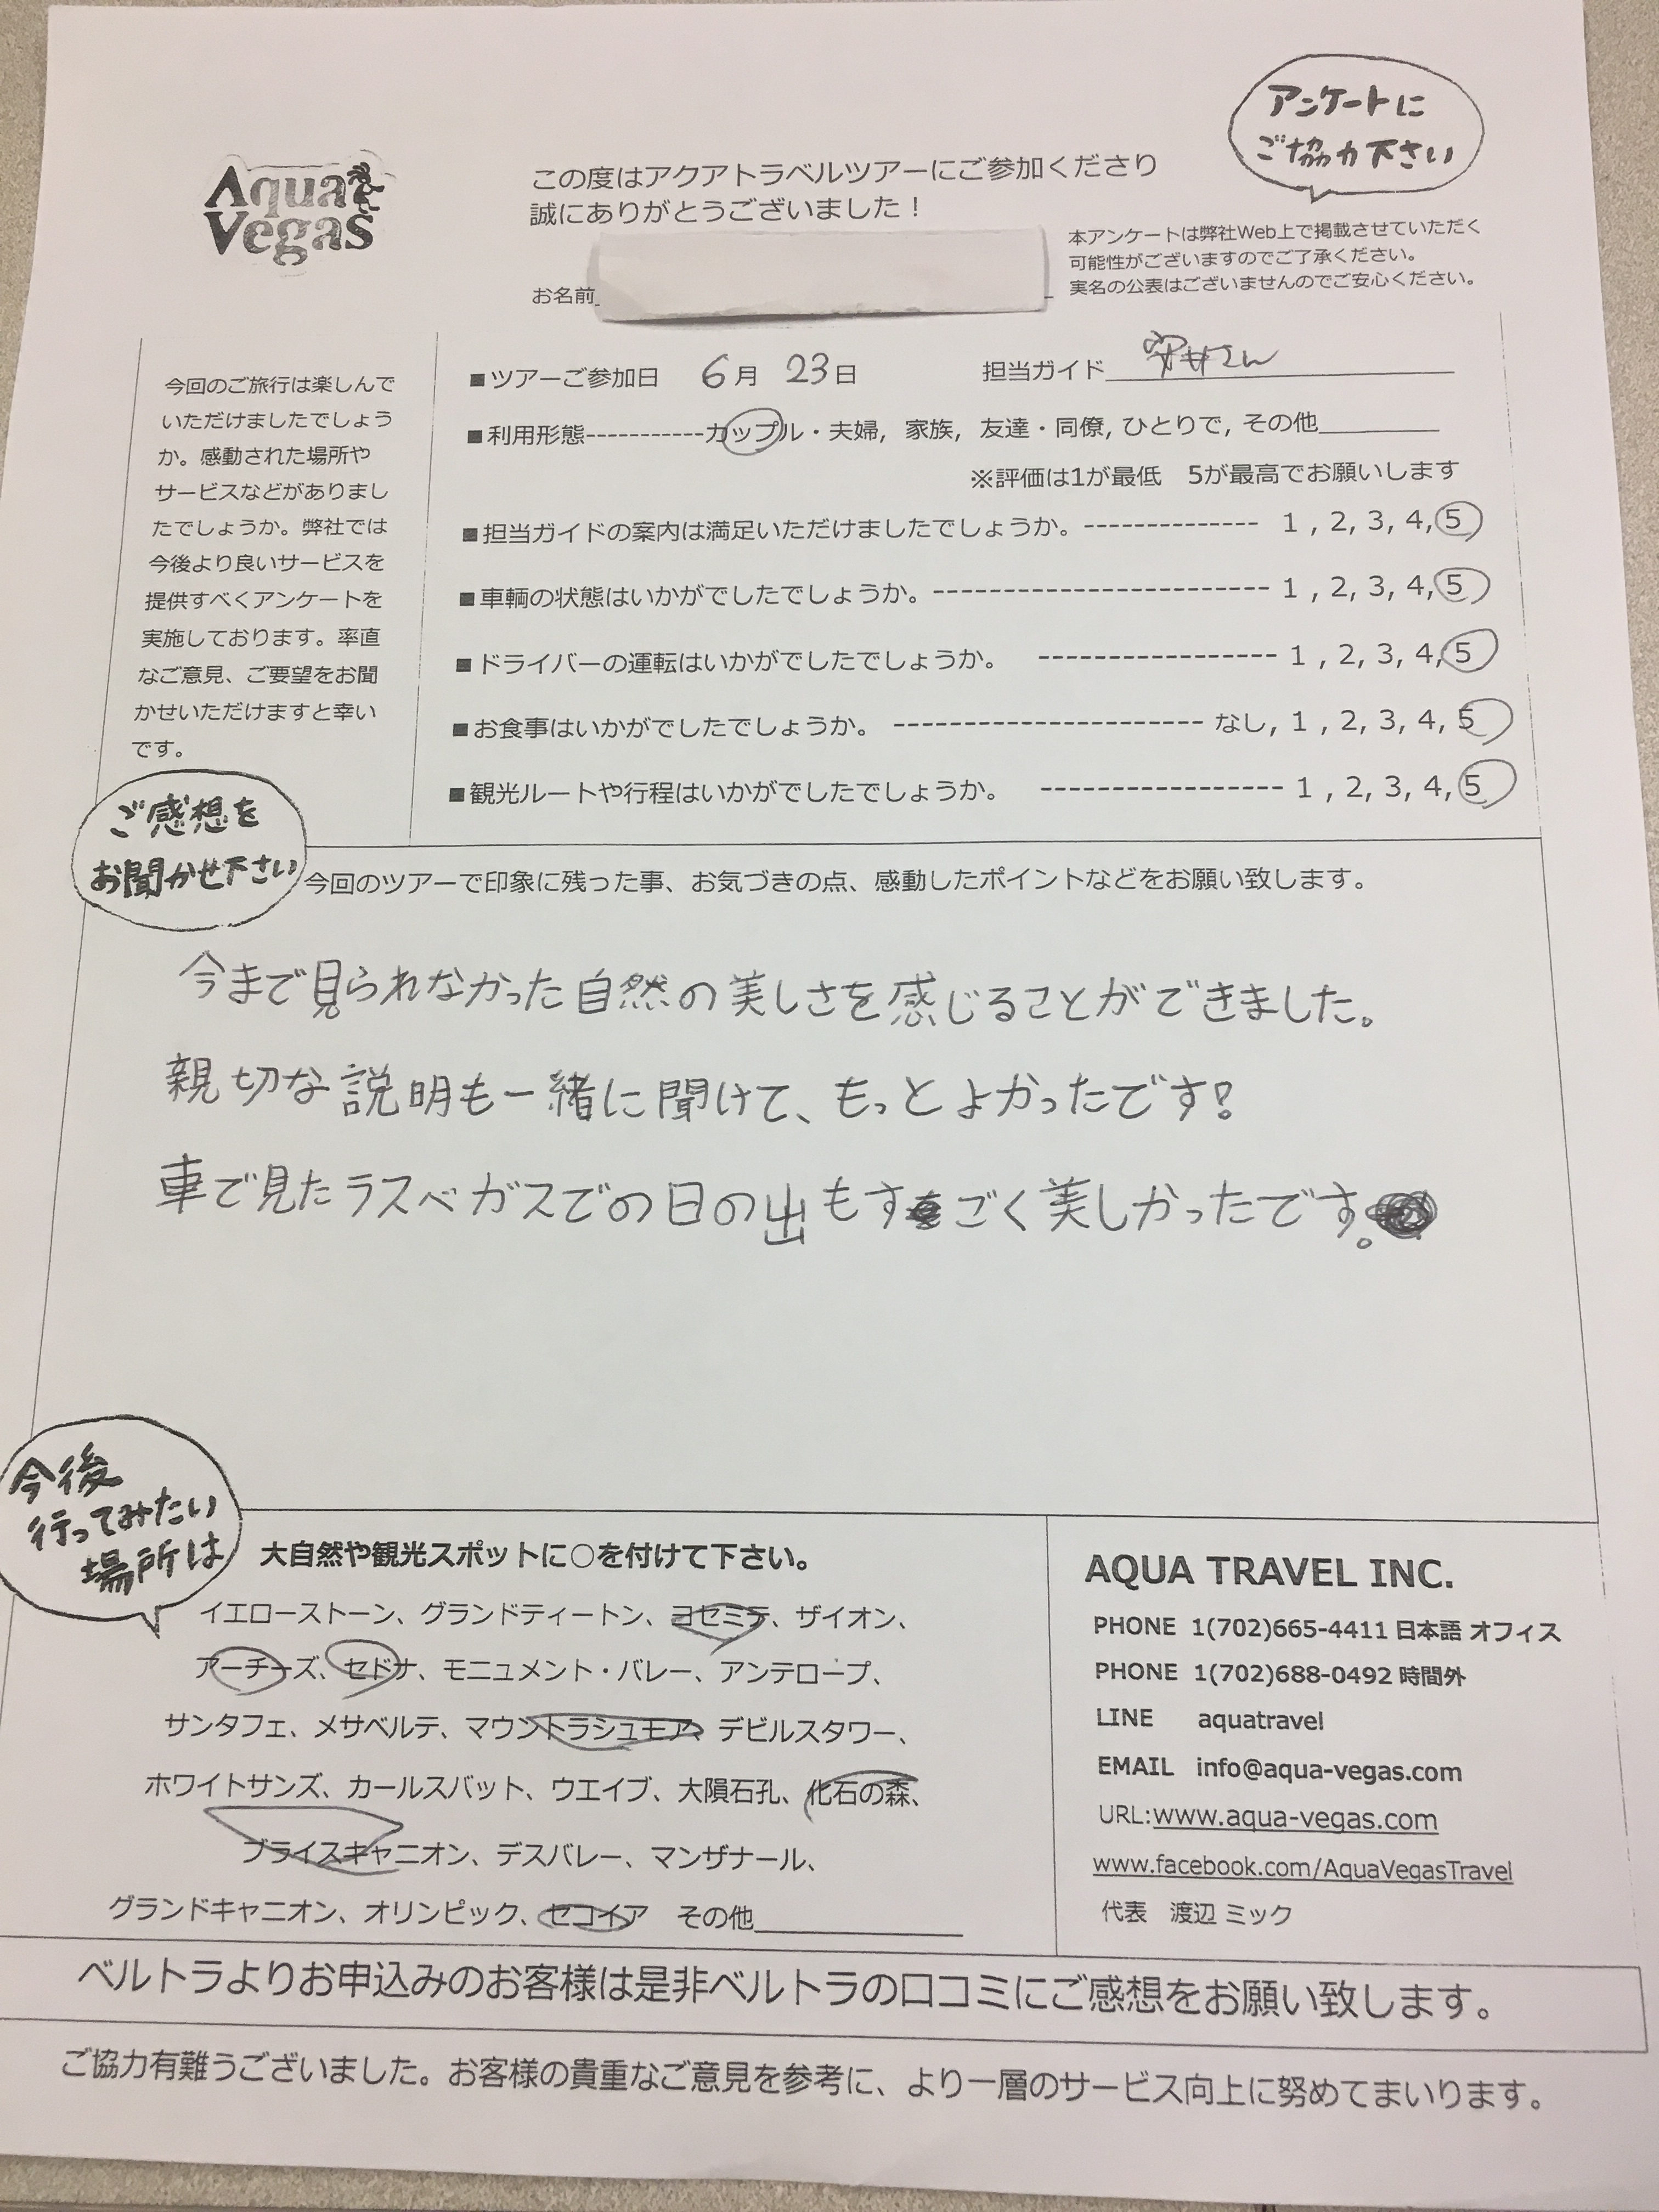 アンケートに
ご協力下さい
Aqua
Vegas
この度はアクアトラベルツアーにご参加くださり
誠にありがとうございました！
本アンケートは弊社Web上で掲載させていただく
可能性がございますのでご了承ください。
実名の公表はございませんのでご安心ください。
お名前
今回のご旅行は楽しんで
いただけましたでしょう
か。感動された場所や
サービスなどがありまし
たでしょうか。弊社では
今後より良いサービスを
提供すべくアンケートを
実施しております。率直
なご意見、ご要望をお聞
かせいただけますと幸い
です。
■ツアーご参加日 6月 23日 担当ガイド さん
■利用形態-----------カップル・夫婦, 家族, 友達・同僚, ひとりで, その他
※評価は1が最低 5が最高でお願いします
■担当ガイドの案内は満足いただけましたでしょうか。-------------- 1 , 2, 3, 4, 5
■車輌の状態はいかがでしたでしょうか。------------------------ 1 , 2, 3, 4, 5
■ドライバーの運転はいかがでしたでしょうか。 ----------------- 1 , 2, 3, 4, 5
■お食事はいかがでしたでしょうか。 ---------------------- なし, 1 , 2, 3, 4, 5
■観光ルートや行程はいかがでしたでしょうか。 ----------------- 1 , 2, 3, 4, 5
ご感想を
お聞かせ下さい
今回のツアーで印象に残った事、お気づきの点、感動したポイントなどをお願い致します。
今まで見られなかった自然の美しさを感じることができました。
親切な説明も一緒に聞けて、もっとよかったです！
車で見たラスベガスでの日の出もすごく美しかったです。
今後
行ってみたい
場所は
大自然や観光スポットに○を付けて下さい。
イエローストーン、グランドティートン、ヨセミテ、ザイオン、
アーチーズ、セドナ、モニュメント・バレー、アンテロープ、
サンタフェ、メサベルテ、マウントラシュモア、デビルスタワー、
ホワイトサンズ、カールスバット、ウエイブ、大隕石孔、化石の森、
ブライスキャニオン、デスバレー、マンザナール、
グランドキャニオン、オリンピック、セコイア その他
AQUA TRAVEL INC.
PHONE 1(702)665-4411 日本語 オフィス
PHONE 1(702)688-0492 時間外
LINE aquatravel
EMAIL info@aqua-vegas.com
URL:www.aqua-vegas.com
www.facebook.com/AquaVegasTravel
代表 渡辺 ミック
ベルトラよりお申込みのお客様は是非ベルトラの口コミにご感想をお願い致します。
ご協力有難うございました。お客様の貴重なご意見を参考に、より一層のサービス向上に努めてまいります。